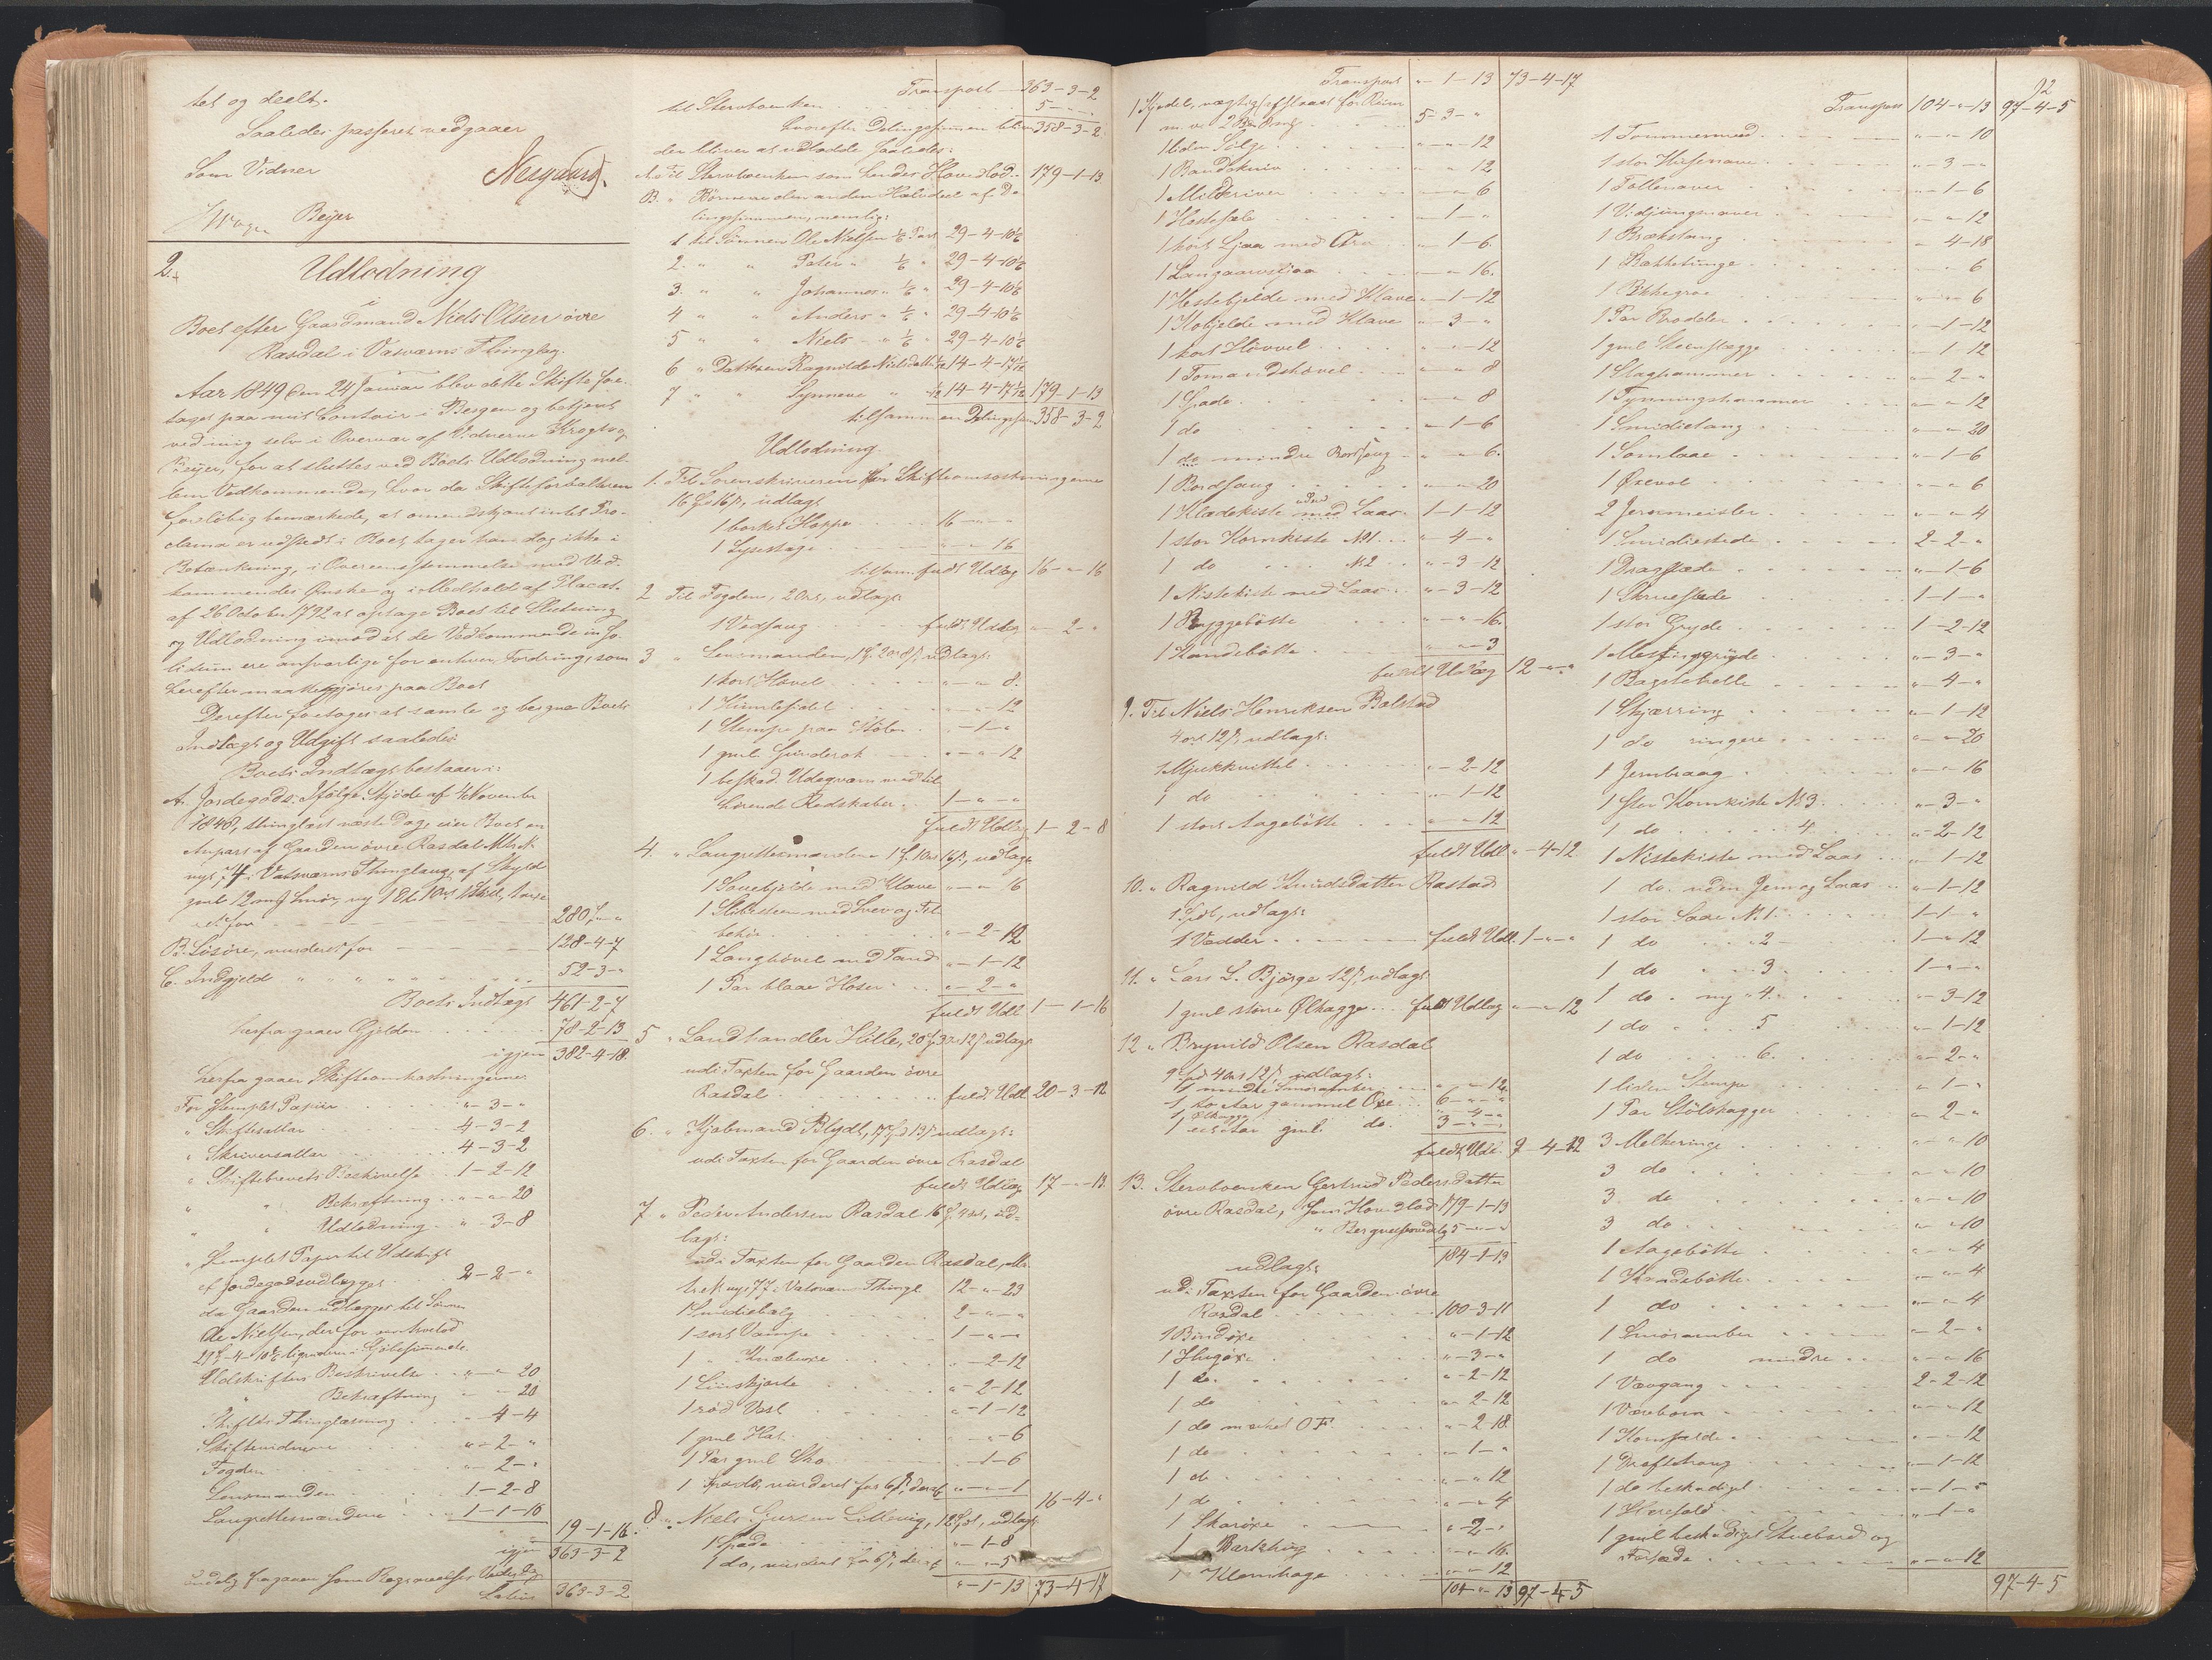 tet og deelt.
Saaledes passeret vedgaaer
Som Vidner
Neegaard.
Beyer
2.
Udlodning
i
Boet efter Gaardmand Niels Olsen øvre
Rasdal i Vasværns Thinglag.
Aar 1849 den 24 Januar blev dette Skifte fore-
taget paa mit Contoir i Bergen og betjent
ved mig selv i Overvær af Vidnerne Krogh og
Beyer, for at sluttes ved Boets Udlodning mel-
lem Vedkommende, hvor da Skifteforvalteren
foreløbig bemærkede, at omendskjønt intet Pro-
clama er udstædt i Boet, tager han dog ikke i
Betænkning, i Overeensstemmelse med Ved-
kommendes Ønske og i Medhold af Placat
af 26 October 1792 at optage Boet til Slutning
og Udlodning imod at de Vedkommende in so-
lidum ere ansvarlige for enhver Fordring, som
herefter maatte gjøres paa Boet
Derefter foretoges at samle og beregne Boets
Indtægt og Udgift saaledes
Boets Indtægt bestaaer i:
A. Jordegods: Ifølge Skjøde af November
thinglæst næste Dag, eier Boet en
Anpart af Gaarden øvre Rasdal Mtr. N.
nyt 77 i Vatsværns Thinglaug, af Skyld
gml 12 mf Smør, ny 1 Dl. 1 Ort Skill,
et for 280 - " - "
B. Løsøre, vurderet for 128-4-7
C. Indgjeld " " " 52-3-"
Boets Indtægt 461-2-7
herfra gaaer Gjelden 78-2-13
igjen 382-4-18.
herfra gaaer Skifteomkostningerne
For stemplet Papiir "-3-"
" Skiftesallar 4-3-2
" Skriversallar 4-3-2
" Skiftebrevets Beskrivelse 1-2-12
" " Bekræftning "-"-20
" " Udlodning "-3-8
" stemplet Papir til Udskrift
af Jordegodsudlægget 2-2-"
da Gaarden udlægges til Sønnen
Ole Nielsen, der for
Udskriftens Beskrivelse "-"-20
" Bekræftning "-"-20
Skiftets Thinglæsning "-4-4
Skiftevidnerne "-2-"
Fogden "-2-"
Lensmanden 1-2-8
Laugrettesmændene 1-1-16
19-1-16.
igjen 363-3-2
Latus 363-3-2
Transport 363-3-2
til Stervboenken 5-"-"
hvorefter Delingssummen bliver 358-3-2.
der bliver at udlodde saaledes:
A. Til Stervboenken som hendes Hovedlod 179-1-13
B. " Børnene den anden Halvdeel af De-
lingssummen, nemlig:
1 til Sønnen Ole Nielsen 1/6 Part 29-4-10 1/6
2. " " Peter " 1/6 " 29-4-10 1/6
3. " " Johannes " 1/6 " 29-4-10 1/6
4 " " Anders " 1/6 " 29-4-10 1/6
5 " " Niels " 1/6 " 29-4-10 1/6
6 " Datteren Ragnilde Nielsdatt 1/12 14-4-17 1/12
7 " " Synneve " 1/12 14-4-17 1/12 179-1-13
tilsammen Delingssum 358-3-2
Udlodning.
1. Til Sorenskriveren for Skifteomkostningerne
16 Spd 16 ß, udlagt
1 borket Hoppe 16-"-"
1 Lysestage "-"-16
tilsam. fuldt Udlæg 16-"-16
2 Til Fogden, 2 Ort, udlagt
1 Vedsaug fuldt Udlæg "-2-"
3 " Lensmanden, 1 Spd 2 Ort 8 ß, udlagt
1 kort Høvel "-"-8.
1 Humlefidel "-"-12
1 Stempe paa Stølen "-1-"
1 gml Grinderok "-"-12
1 beskad. Udegværn med til
hørende Redskaber 1-"-"
fuldt Udlæg 1-2-8
4. " Laugrettesmændene 1 Spd 1 Ort 16 ß, udlagt
1 Souebjelde med Klave "-"-16
1 Slibesteen med Svev og Til
behør "-2-12
1 Langhøvel med Tand "-1-12
1 Par blaae Hoser "-2-"
fuldt Udl 1-1-16
5 " Landhandler Hille, 20 Spd 3 Ort 12 ß udlagt
udi Taxten for Gaarden øvre
Rasdal fuldt Udl 20-3-12
6. " Kjøbmand Blydt, 17 Spd 13 ß udlagt:
udi Taxten for Gaarden øvre Rasdal
fuldt Udlæg 17-"-13
7 " Peder Andersen Rasdal 16 Spd 4 Ort, ud-
lagt:
udi Taxten for Gaarden Rasdal, Ma-
tr. N. nyt 77 i Vatsværn Thingl. 12-"-23
1 Smidiebælg 2-"-"
1 sort Vampe 1-"-"
1 " Knæbuxe "-2-12
1 Liinskjorte "-2-12
1 rød Vest "-1-12
1 gml Hat "-"-6
1 Par gml Sko "-1-6
1 vurderet for 6 ß, deraf "-"-1
16-4-"
8 " Niels Sjursen Lillevig, 12 Spd, udlagt
1 Spade "-1-8
1 do, vurderet for 6 ß, deraf "-"-5
"-1-13 73-4-17
Transport "-1-13 73-4-17
1 Kjedel, vægtig (afslaaet for Reiner
m. v. 5-3-"
1 liden Sølge "-"-12
1 Bandekniv "-"-12
1 Meldkriver "-"-6
1 Hestesele "-1-"
1 kort Ljaa med Orv "-1-6.
1 Langaarvsljaa "-"-16.
1 Hestebjelde med Klave "-1-12
1 Kobjelde med Klave "-3-"
1 kort Høvel "-"-12
1 Tomandshøvel "-"-8
1 Spade "-"-8
1 do "-1-6
1 do mindre Bordsaug "-"-6.
1 Bordsaug "-"-20
1 Klædekiste uden Laas 1-1-12
1 stor Kornkiste N1 "-4-"
1 do N2 "-3-12
1 Nistekiste med Laas "-3-12
1 Bryggebøtte "-"-16.
1 Handebøtte "-"-3
fuldt Udlæg 12-"-"
9. Til Niels Henriksen Bolstad
4 Ort 12 ß, udlagt:
1 Mjukkvittel "-2-12
1 do "-1-12
1 stort Aagebøtte "-"-12
fuldt Udl "-4-12
10. " Ragnild Knudsdatter Rastad
1 Spd, udlagt:
1 Vædder fuldt Udl. 1-"-"
11. " Lars L. Bjørge 12 ß, udlagt
1 gml større Ølkagge fuldt Udlæg "-"-12
12 " Brynild Olsen Rasdal
9 Spd 4 Ort 12 ß udlagt:
1 mindre Smøramber "-"-12
1 to Aar gammel Oxe 6-"-"
1 Ølkagge "-4-"
1 eet Aar gml. do. 3-"-"
fuldt Udl. 9-4-12
13. Stervboenken Gertrud Pedersdatter
øvre Rasdal, som Hovedlod 179-1-13
" Begravelsesudlæg 5-"-"
184-1-13
udlagt:
udi Taxten for Gaarden øvre
Rasdal 100-3-11
1 Bindøxe "-1-12
1 Hugøxe "-3-"
1 do. "-2-12
1 do "-2-12
1 do mærket OF "-2-18
1 do "-1-"
1 do "-"-12
1 do "-"-4
1 Skarøxe "-2-"
1 "-"-16.
1 Klomhage "-"-12
104-"-13 97-4-5
92
Transport 104-"-13 97-4-5
1 Tommermerd "-"-10
1 stor Husenaver "-3-"
1 Tollenaver "-1-6
1 Vidjungenaver "-"-12
1 Brækstang "-4-18
1 Bakketunge "-"-6
1 Bikkegroe "-"-6
1 Par Brodder "-1-12
1 gml Steenslægge "-1-12
1 Slaghammer "-2-"
1 Tynningshammer "-"-12
1 Smidietang "-"-20
1 Somlaae "-1-6
1 Øxevol "-"-6
2 Jernmeisler "-"-4
1 Smidiestede 2-2-"
1 Dragstæde "-1-6
1 Skruestede 1-1-"
1 stor Gryde 1-2-12
1 Messinggryde "-3-"
1 Bagstehelle "-4-"
1 Skjæring "-1-12
1 do ringere "-"-20
1 Jernbraag "-"-16
1 stor Kornkiste N3 "-3-"
1 do 4 "-2-12
1 Nistekiste med Laas "-1-12
1 do. uden Jern og Laas "-1-12
1 stor Saae N1 1-1-"
1 do 2 1-"-12
1 do 3 1-"-"
1 do. ny 4 "-3-12
1 do 5 "-1-12
1 do 6. "-2-"
1 liden Stempe "-1-"
1 Par Stølskagger "-2-"
3 Melkeringe "-"-10
3 do "-"-10
3 do "-"-10
3 do "-"-10
1 Aagebøtte "-"-4
1 Handebøtte "-"-4
1 do "-"-4
1 Smøramber "-2-"
1 do mindre "-"-16
1 Vævgang 2-2-12
1 "-"-12
1 Kornsælde "-"-12
1 Drøftetraug "-1-12
1 do beskadiget "-1-"
1 Horefold "-1-"
1 gml beskadiget Stuebord og
Forsæde "-"-12
97-4-5